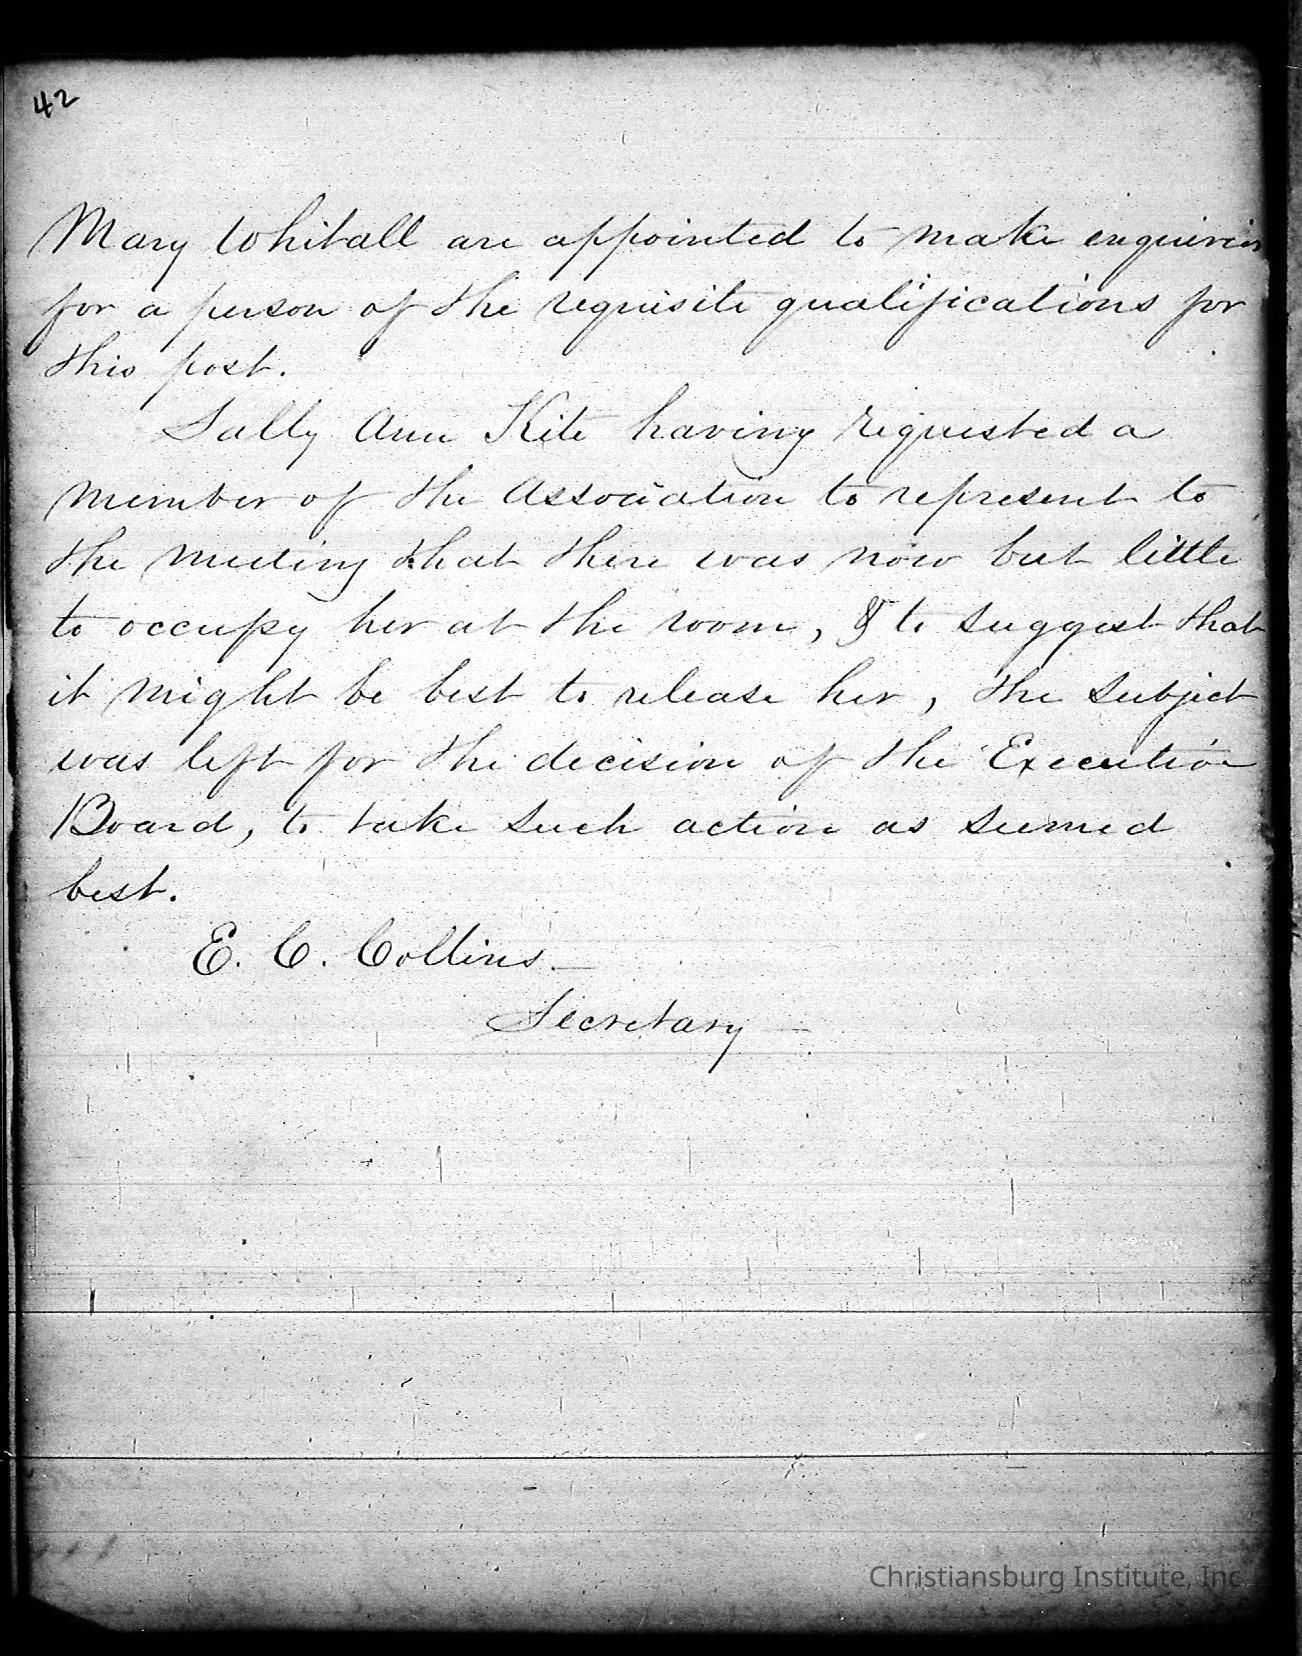 42
Mary Whitall are appointed to make enquiries
for a person of the requisite qualifications for
this post.
Sally Ann Kite having requested a
member of the Association to represent to
the meeting that there was now but little
to occupy her at the room, & to suggest that
it might be best to release her, the subject
was left for the decision of the Executive
Board, to take such action as seemed
best.
E. C. Collins
Secretary
Christiansburg Institute, Inc.